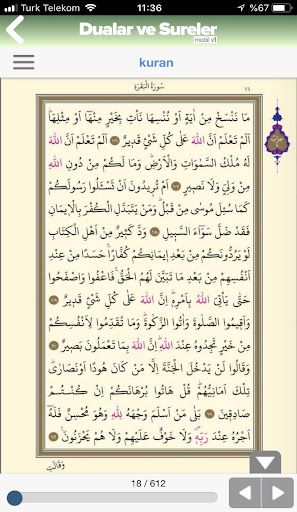 Turk Telekom 11:36 %67
Dualar ve Sureler
mobil v1
kuran
سُورَةُ الْبَقَرَةِ ١٦
مَا نَنْسَخْ مِنْ اٰيَةٍ اَوْ نُنْسِهَا نَأْتِ بِخَيْرٍ مِنْهَٓا اَوْ مِثْلِهَاۜ
اَلَمْ تَعْلَمْ اَنَّ اللّٰهَ عَلٰى كُلِّ شَيْءٍ قَد۪يرٌ ﴿١٠٦﴾ اَلَمْ تَعْلَمْ اَنَّ اللّٰهَ
لَهُ مُلْكُ السَّمٰوَاتِ وَالْاَرْضِۜ وَمَا لَكُمْ مِنْ دُونِ اللّٰهِ
مِنْ وَلِيٍّ وَلَا نَص۪يرٍ ﴿١٠٧﴾ اَمْ تُر۪يدُونَ اَنْ تَسْـَٔلُوا رَسُولَكُمْ
كَمَا سُئِلَ مُوسٰى مِنْ قَبْلُۜ وَمَنْ يَتَبَدَّلِ الْكُفْرَ بِالْا۪يمَانِ
فَقَدْ ضَلَّ سَوَٓاءَ السَّب۪يلِ ﴿١٠٨﴾ وَدَّ كَث۪يرٌ مِنْ اَهْلِ الْكِتَابِ
لَوْ يَرُدُّونَكُمْ مِنْ بَعْدِ ا۪يمَانِكُمْ كُفَّارًاۚ حَسَدًا مِنْ عِنْدِ
اَنْفُسِهِمْ مِنْ بَعْدِ مَا تَبَيَّنَ لَهُمُ الْحَقُّۚ فَاعْفُوا وَاصْفَحُوا
حَتّٰى يَأْتِيَ اللّٰهُ بِاَمْرِه۪ۜ اِنَّ اللّٰهَ عَلٰى كُلِّ شَيْءٍ قَد۪يرٌ ﴿١٠٩﴾
وَاَق۪يمُوا الصَّلٰوةَ وَاٰتُوا الزَّكٰوةَۜ وَمَا تُقَدِّمُوا لِاَنْفُسِكُمْ
مِنْ خَيْرٍ تَجِدُوهُ عِنْدَ اللّٰهِۜ اِنَّ اللّٰهَ بِمَا تَعْمَلُونَ بَص۪يرٌ ﴿١١٠﴾
وَقَالُوا لَنْ يَدْخُلَ الْجَنَّةَ اِلَّا مَنْ كَانَ هُودًا اَوْ نَصَارٰىۜ
تِلْكَ اَمَانِيُّهُمْۜ قُلْ هَاتُوا بُرْهَانَكُمْ اِنْ كُنْتُمْ
صَادِق۪ينَ ﴿١١١﴾ بَلٰى مَنْ اَسْلَمَ وَجْهَهُ لِلّٰهِ وَهُوَ مُحْسِنٌ فَلَهُٓ
اَجْرُهُ عِنْدَ رَبِّه۪ۖ وَلَا خَوْفٌ عَلَيْهِمْ وَلَا هُمْ يَحْزَنُونَ ﴿١١٢﴾
وَقَالَتِ
18 / 612